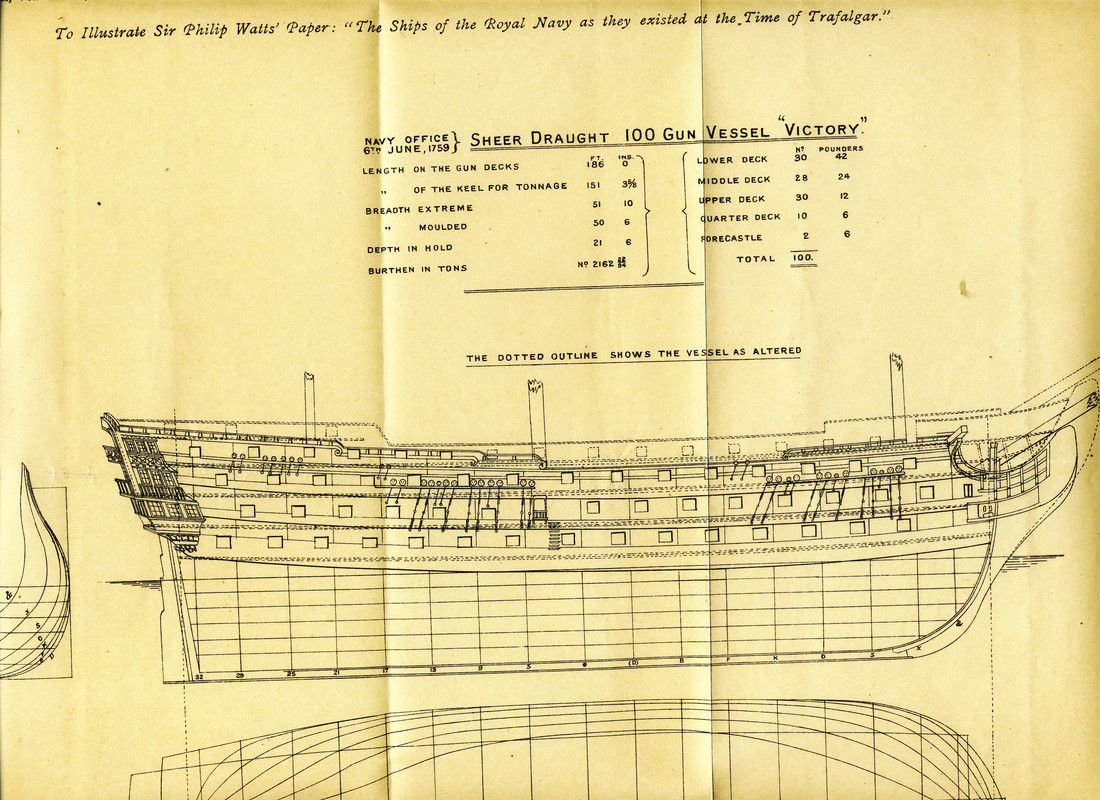 To Illustrate Sir Philip Watts' Paper: "The Ships of the Royal Navy as they existed at the Time of Trafalgar."
NAVY OFFICE } SHEER DRAUGHT 100 GUN VESSEL "VICTORY".
6TH JUNE, 1759
FT. INS.
LENGTH ON THE GUN DECKS 186 0
„ OF THE KEEL FOR TONNAGE 151 3⅝
BREADTH EXTREME 51 10
" MOULDED 50 6
DEPTH IN HOLD 21 6
BURTHEN IN TONS Nº 2162
Nº POUNDERS
LOWER DECK 30 42
MIDDLE DECK 28 24
UPPER DECK 30 12
QUARTER DECK 10 6
FORECASTLE 2 6
TOTAL 100.
THE DOTTED OUTLINE SHOWS THE VESSEL AS ALTERED
32 29 25 21 17 13 9 5 (D) B F K O S X &